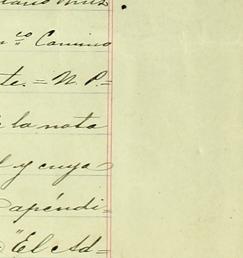 n.co Camino
te. = N. P. =
la nota
l y cuya
apéndi=
"El Ad=